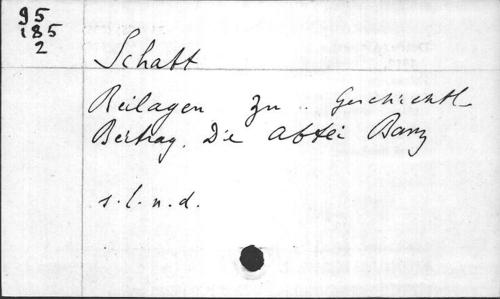 95
185
2
Schatt
Beilagen zu .. Geschichtl.
Beitrag. Die Abtei Banz
s.l.n.d.